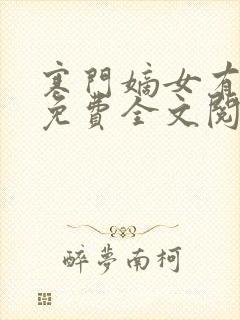 寒門嫡女有
免費全文閱
醉夢南柯